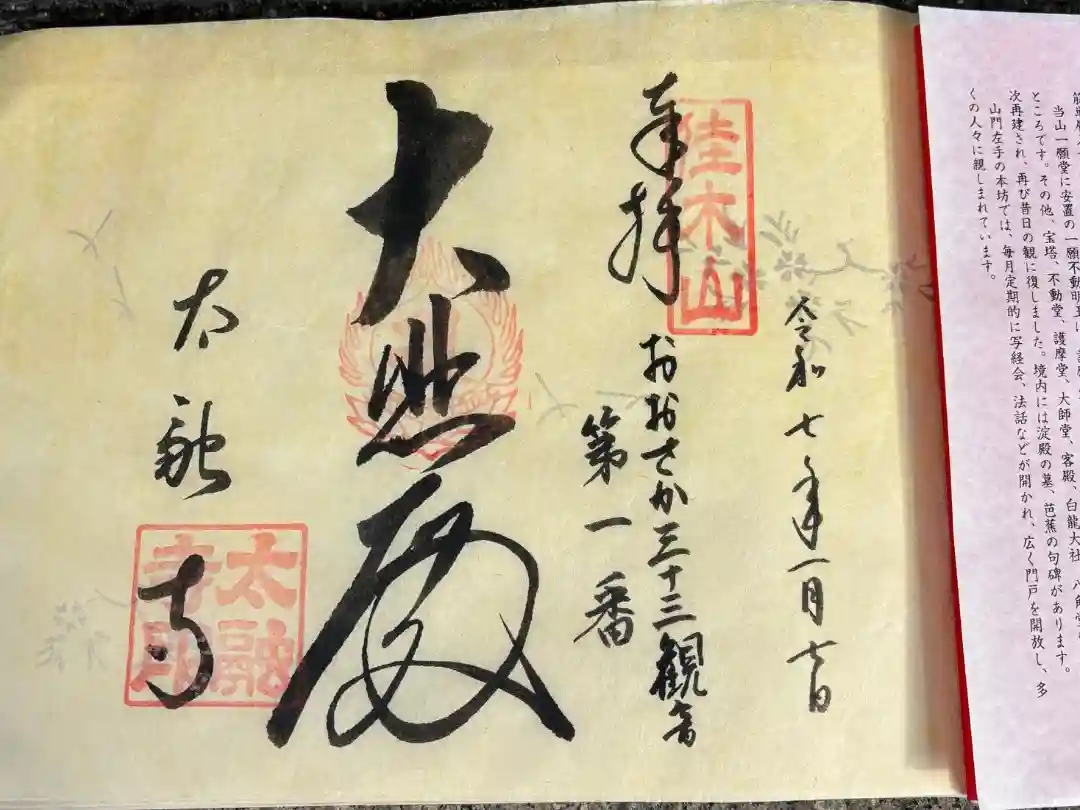 当山一願堂に安置の一願不動明王は
ところです。その他、宝塔、不動堂、護摩堂、大師堂、客殿、白龍大社、八角堂
次再建され、再び昔日の観に復しました。境内には淀殿の墓、芭蕉の句碑があります。
山門左手の本坊では、毎月定期的に写経会、法話などが開かれ、広く門戸を開放し、多
くの人々に親しまれています。
令和七年一月七日
佳木山
奉拝
おおさか三十三観音
第一番
大悲殿
太融寺
太融
寺印